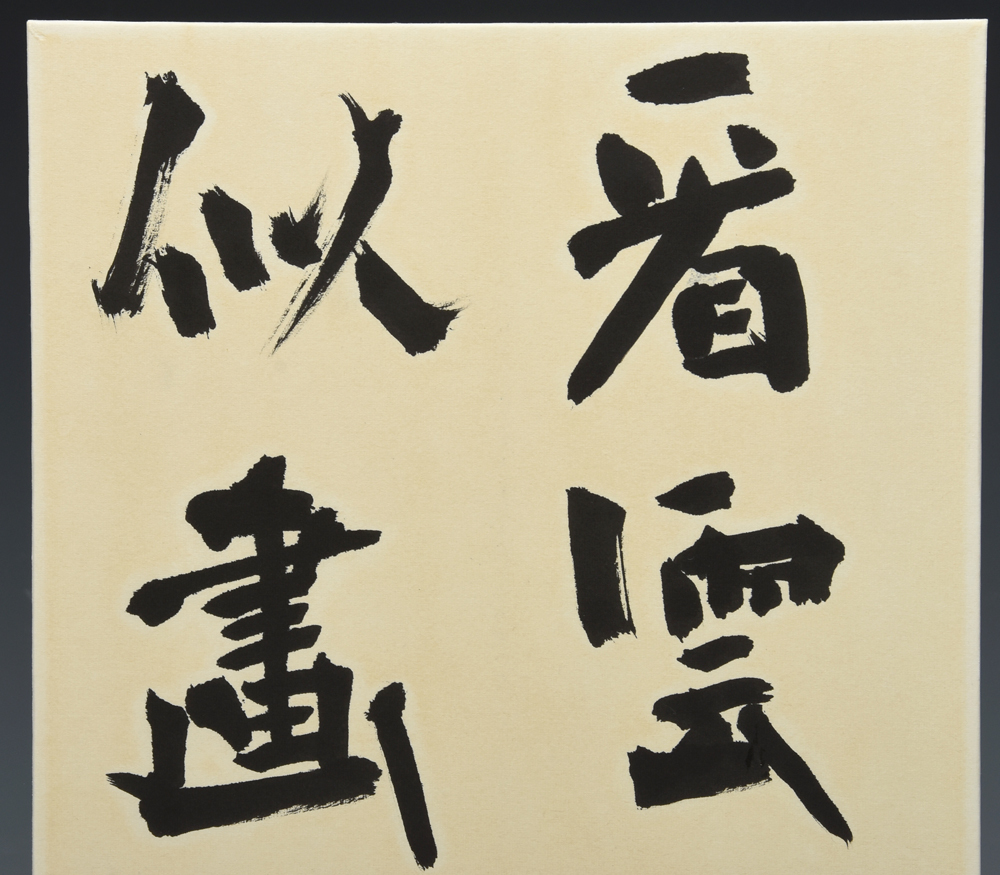 看雲
似畫